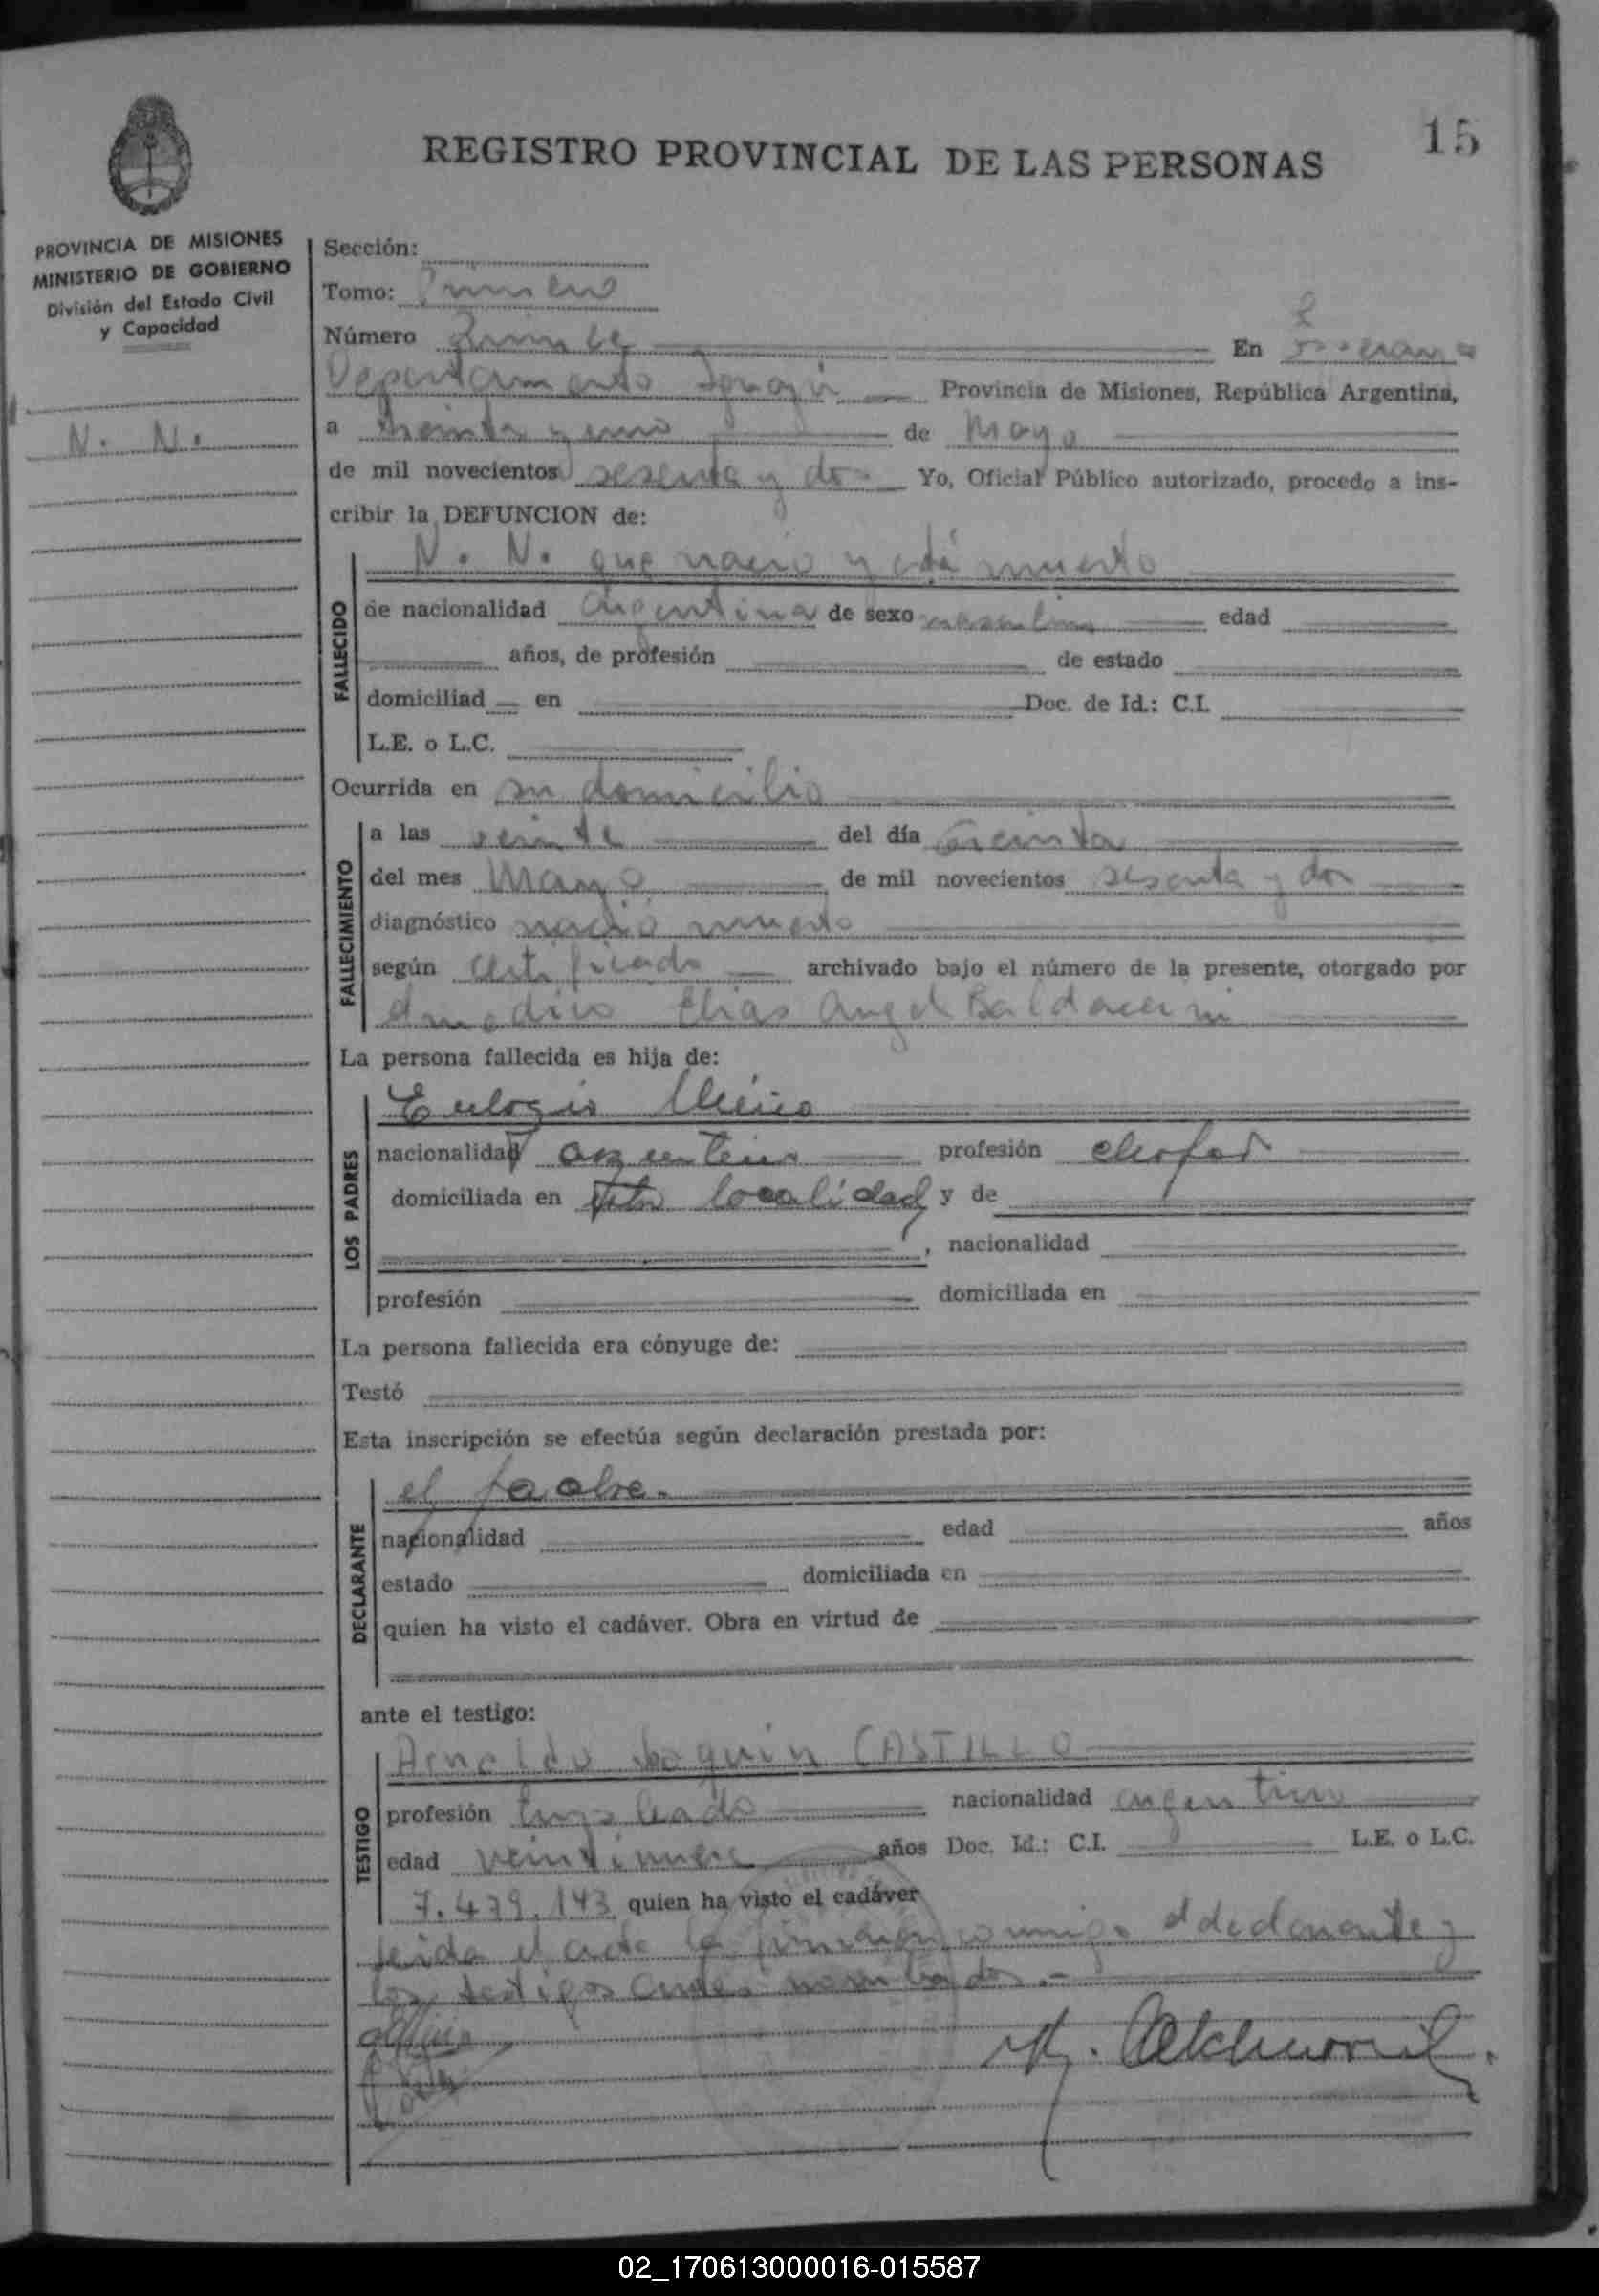 15
REGISTRO PROVINCIAL DE LAS PERSONAS
PROVINCIA DE MISIONES
MINISTERIO DE GOBIERNO
División del Estado Civil
y Capacidad
N. N.
Sección:
Tomo: Primero
Número Quince En
Departamento Iguazú Provincia de Misiones, República Argentina,
a treinta y uno de Mayo
de mil novecientos sesenta y dos Yo, Oficial Público autorizado, procedo a ins-
cribir la DEFUNCION de:
N. N. que nacio y está muerto
FALLECIDO
de nacionalidad argentina de sexo masculino edad
años, de profesión de estado
domiciliad en Doc. de Id.: C.I.
L.E. o L.C.
Ocurrida en su domicilio
FALLECIMIENTO
a las veinte del día treinta
del mes Mayo de mil novecientos sesenta y dos
diagnóstico nacio muerto
según Certificado archivado bajo el número de la presente, otorgado por
el medico Elias Angel Baldacerini
La persona fallecida es hija de:
LOS PADRES
Eulogio
nacionalidad argentino profesión chofer
domiciliada en esta localidad y de
, nacionalidad
profesión domiciliada en
La persona fallecida era cónyuge de:
Testó
Esta inscripción se efectúa según declaración prestada por:
DECLARANTE
el padre.
nacionalidad edad años
estado domiciliada en
quien ha visto el cadáver. Obra en virtud de
ante el testigo:
TESTIGO
Arnoldo Joquin CASTILLO
profesión Empleado nacionalidad argentino
edad veintinueve años Doc. Id.: C.I. L.E. o L.C.
7.479.143 quien ha visto el cadáver
leida el acta la firmaron conmigo el declarante y
los testigos antes nombrados.-
02_170613000016-015587